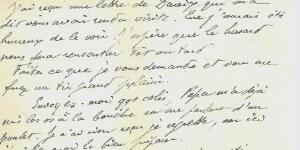 J'ai reçu une lettre de
dit vous avoir rendu visite que j'aurais été
heureux de le voir J'espère que le hasard
nous fera rencontrer tôt ou tard
Faites ce que je vous demande et vous me
ferez un très grand plaisir
Envoyez-moi colis, Papa m'a déjà
mis les os à la bouche en me parlant d'un
poulet. Je n'ai rien reçu je répète, car ici
le bien